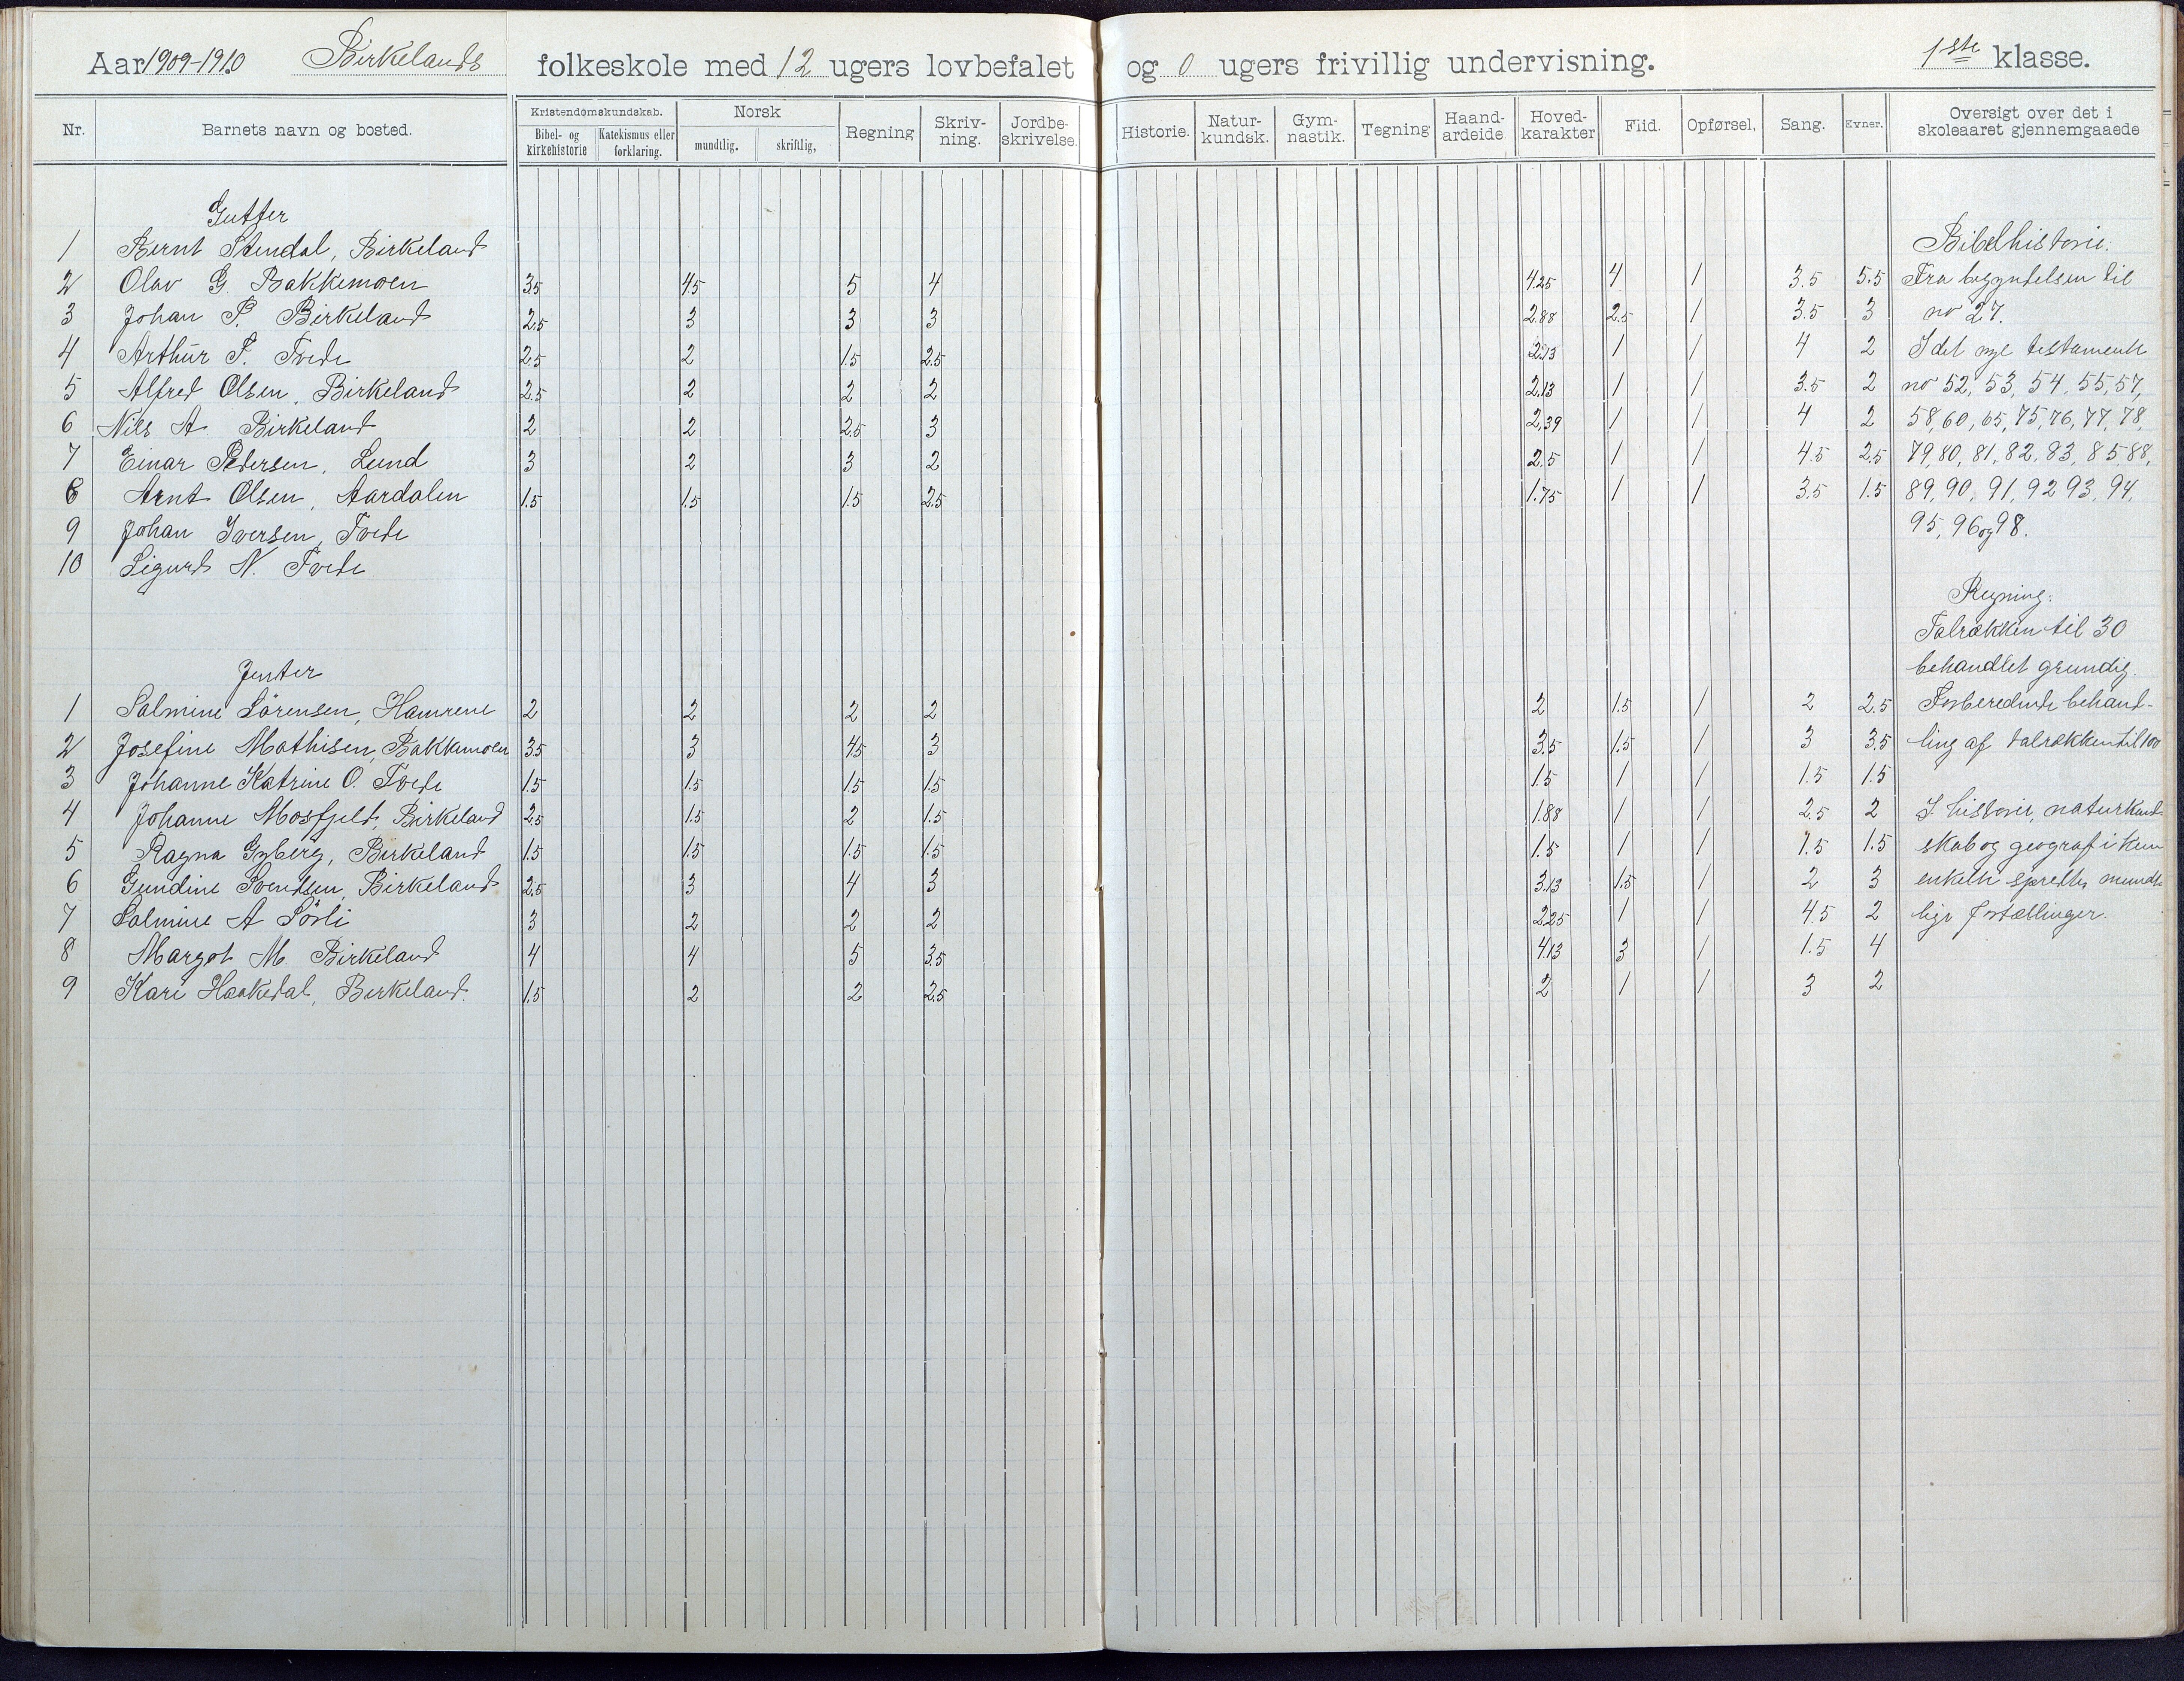 Aar 1909-1910 Birkelands folkeskole med 12 ugers lovbefalet og 0 ugers frivillig undervisning. 1ste klasse.
Nr. Barnets navn og bosted. Kristendomskundskab. Bibel- og kirkehistorie Katekismus eller forklaring. Norsk mundtlig. skriftlig, Regning Skriv-ning. Jordbe-skrivelse. Historie. Natur-kundsk. Gym-nastik. Tegning Haand-ardeide Hoved-karakter Flid. Opførsel, Sang. Evner. Oversigt over det i skoleaaret gjennemgaaede
Gutter
1 Bernt Stendal, Birkeland
2 Olav G. Bakkemoen 3.5 4.5 5 4 4.25 4 1 3.5 5.5
3 Johan P. Birkeland 2.5 3 3 3 2.88 2.5 1 3.5 3
4 Arthur T. Tvede 2.5 2 1.5 2.5 2.13 1 1 4 2
5 Alfred Olsen, Birkeland 2.5 2 2 2 2.13 1 1 3.5 2
6 Nils A Birkeland 2 2 2.5 3 2.39 1 1 4 2
7 Einar Pedersen, Lund 3 2 3 2 2.5 1 1 4.5 2.5
8 Arnt Olsen, Aardalen 1.5 1.5 1.5 2.5 1.75 1 1 3.5 1.5
9 Johan Iversen, Tvede
10 Sigurd N. Tvede
Jenter
1 Salmine Sörensen, Hamrene 2 2 2 2 2 1.5 1 2 2.5
2 Josefine Mathisen, Bakkemoen 3.5 3 4.5 3 3.5 1.5 1 3 3.5
3 Johanne Katrine O. Tvede 1.5 1.5 1.5 1.5 1.5 1 1 1.5 1.5
4 Johanne Mosfjeld, Birkeland 2.5 1.5 2 1.5 1.88 1 1 2.5 2
5 Ragna Gyberg, Birkeland 1.5 1.5 1.5 1.5 1.5 1 1 1.5 1.5
6 Gundine Svendsen, Birkeland 2.5 3 4 3 3.13 1.5 1 2 3
7 Salmine A Sörli 3 2 2 2 2.25 1 1 4.5 2
8 Margot M. Birkeland 4 4 5 3.5 4.13 3 1 1.5 4
9 Kari Haakedal, Birkeland. 1.5 2 2 2.5 2 1 1 3 2
Bibelhistorie.
Fra begyndelsen til
no 27.
I det nye testamente
no 52, 53, 54, 55, 57,
58, 60, 65, 75, 76, 77, 78,
79, 80, 81, 82, 83, 85 88,
89, 90, 91, 92 93, 94,
95, 96 og 98.
Regning:
Talrækken til 30
behandlet grundig.
Forberedende behand-
ling af talrækken til 100
I historie, naturkund-
skab og geografi kun
enkelte spredte mundt-
lige fortællinger.